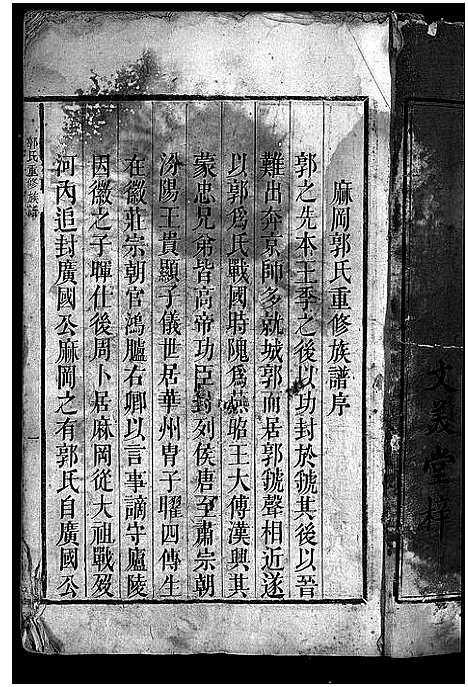 文美堂梓
麻岡郭氏重修族譜序
郭之先本王季之後以功封於虢其後以晉
難出奔京師多就城郭而居郭虢聲相近遂
以郭爲氏戰國時隗爲燕昭王大傅漢興其
蒙忠兄弟皆高帝功臣封列侯唐至肅宗朝
汾陽王貴顯子儀世居華州胄子曜四傳生
在徽莊宗朝官鴻臚右卿以言事謫守廬陵
因徽之子暉仕後周卜居麻岡從大祖戰歿
河內追封廣國公麻岡之有郭氏自廣國公
郭氏重修族譜
一